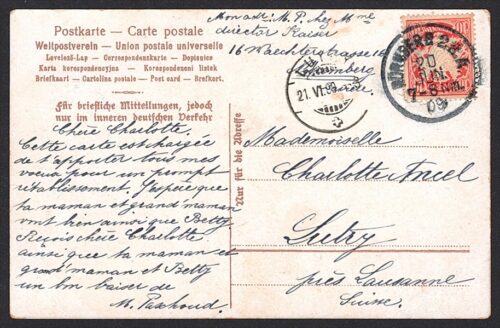 Postkarte – Carte postale
Weltpostverein – Union postale universelle
Levelező-Lap – Correspondenzkarte – Dopisnice
Karta korespondencyjna – Korespondenčni listek
Briefkaart – Cartolina postale – Post card – Brefkort.
Für briefliche Mittellungen, jedoch
nur im inneren deutschen Verkehr
Mon adr. M. P. chez Mme
director Kaiser
16 Waechterstrasse 16
NÜRNBERG 2
20
JUN.
7-8
09
21.VI.09
Chère Charlotte.
Cette carte est chargée
de t'apporter tous mes
voeux pour un prompt
rétablissement. J'espère que
ta maman et grand'maman
vont bien ainsi que Betty.
Reçois chère Charlotte
ainsi que ta maman et
grand'maman et Betty
un bon baiser de
M. Paschoud.
Nur für die Adresse
Mademoiselle
Charlotte Ancel
Lutry
près Lausanne
Suisse.